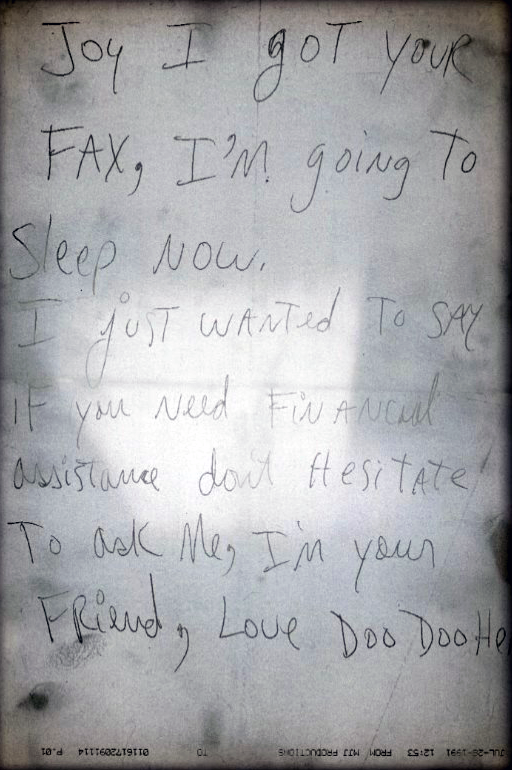 Joy I got your
FAX, I'm going To
Sleep Now.
I just wanted To SAY
IF you Need FiNANcial
assistance don't Hesitate!
To ask Me, I'm your
FRiend, Love Doo Doo He
JUL-26-1991 12:53 FROM MJJ PRODUCTIONS TO 0116172091114 P.01